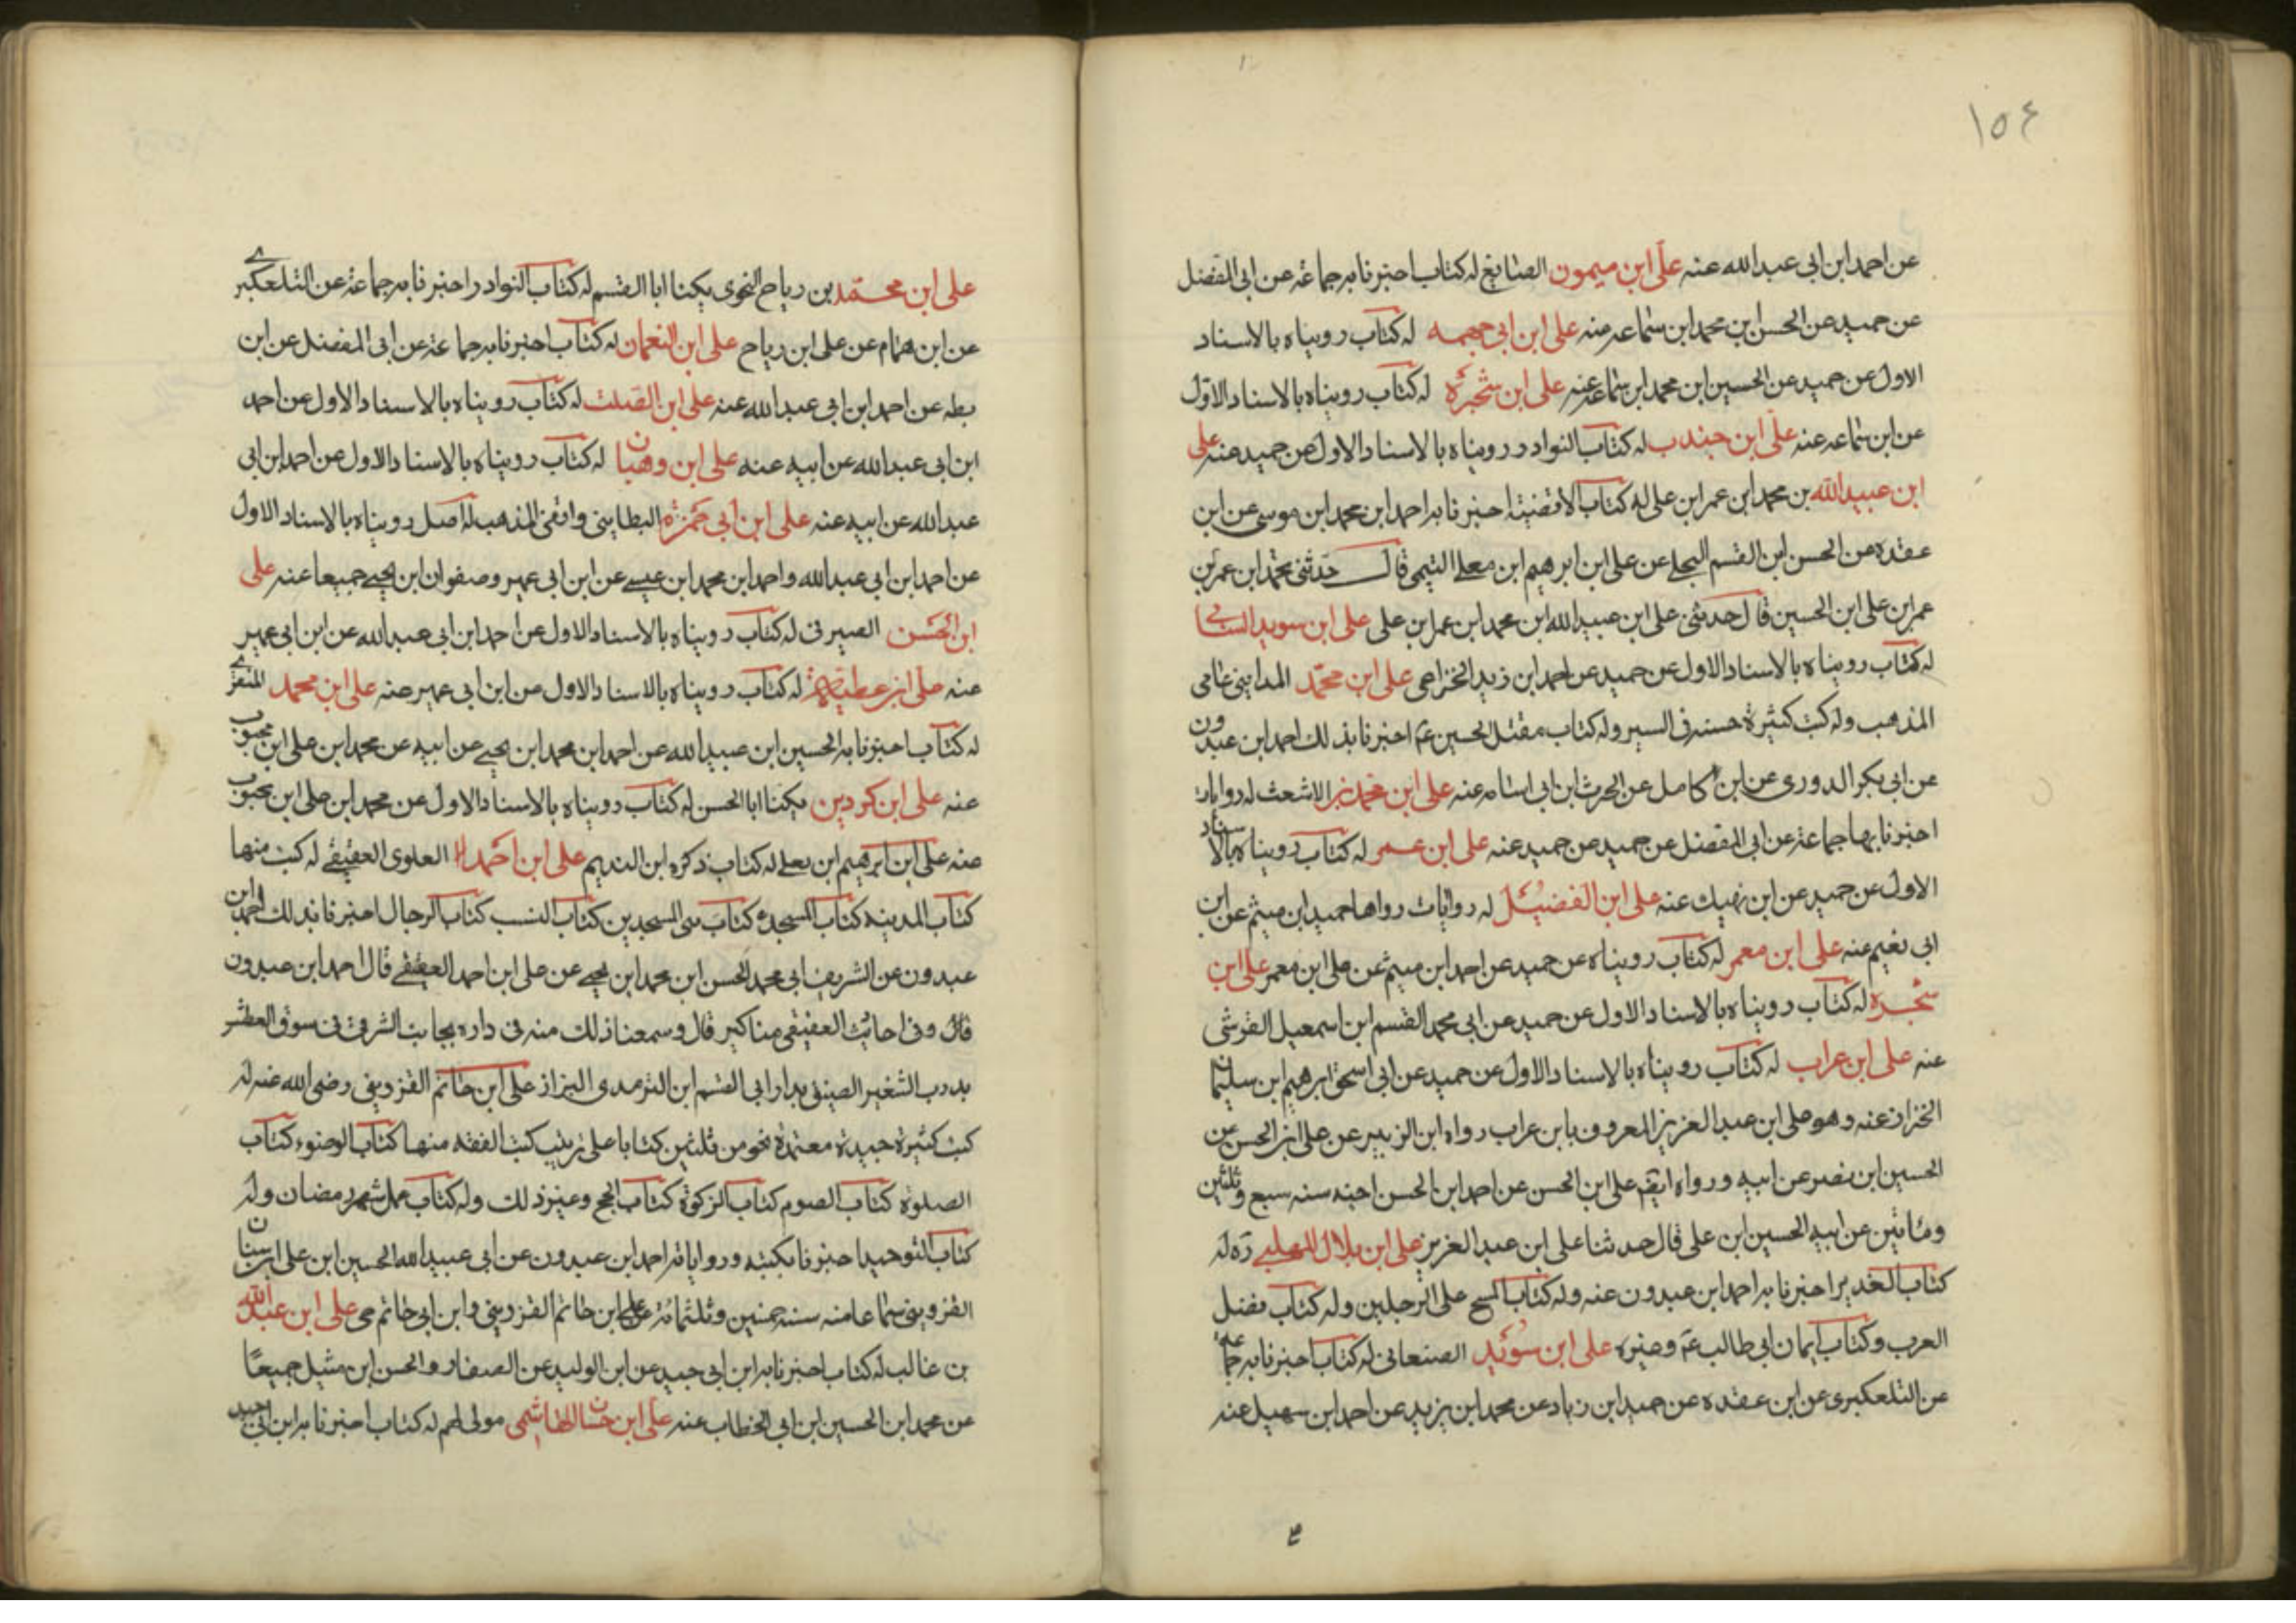 ١٥٤
عن احمد ابن ابى عبد الله عنه على ابن ميمون الصايغ له كتاب اخبرنا به جماعة عن ابى المفضل
عن حميد عن الحسن ابن محمد ابن سماعه عنه على ابن ابى جهمه له كتاب رويناه بالاسناد
الاول عن حميد عن الحسين ابن محمد ابن سماعه عنه على ابن شجرة له كتاب رويناه بالاسناد الاول
عن ابن سماعه عنه على ابن جندب له كتاب النوادر رويناه بالاسناد الاول عن حميد عنه على
ابن عبيد الله بن محمد ابن عمر ابن على له كتاب الاقضية اخبرنا به احمد ابن محمد ابن موسى عن ابن
عقده عن الحسن ابن القسم البجلى عن على ابن ابرهيم ابن معلى التيمى قال حدثنى محمد ابن عمر بن
عمر ابن على ابن الحسين قال حدثنى على ابن عبيد الله ابن محمد ابن عمر ابن على على ابن سويد السائى
له كتاب رويناه بالاسناد الاول عن حميد عن احمد ابن زيد الخزاعى على ابن محمد المداينى عامى
المذهب وله كتب كثيرة حسنه فى السير وله كتاب مقتل الحسين ع اخبرنا بذلك احمد ابن عبدون
عن ابى بكر الدورى عن ابن كامل عن الحرث ابن ابى اسامه عنه على ابن محمد بن الاشعث له روايات
اخبرنا بها جماعة عن ابى المفضل عن حميد عن حميد عنه على ابن عمر له كتاب رويناه بالاسناد
الاول عن حميد عن ابن نهيك عنه على ابن الفضيل له روايات رواها حميد ابن ميثم عن ابن
ابى نعيم عنه على ابن معمر له كتاب رويناه عن حميد عن احمد ابن ميثم عن على ابن معمر على ابن
شجره له كتاب رويناه بالاسناد الاول عن حميد عن ابى محمد القسم ابن اسمعيل القرشى
عنه على ابن عراب له كتاب رويناه بالاسناد الاول عن حميد عن ابى اسحق ابرهيم ابن سليمان
الخزاز عنه وهو على ابن عبد العزيز المعروف بابن عراب رواه ابن الزبير عن على ابن الحسن عن
الحسين ابن نصر عن ابيه ورواه ايضا على ابن الحسن عن احمد ابن الحسن اخيه سنه سبع وثلثين
ومائتين عن ابيه الحسين ابن على قال حدثنا على ابن عبد العزيز على ابن بلال المهلبى ره له
كتاب الغدير اخبرنا به احمد ابن عبدون عنه وله كتاب المسح على الرجلين وله كتاب فضل
العرب وكتاب ايمان ابى طالب ع وغيره على ابن سويد الصنعانى له كتاب اخبرنا به جماعه
عن التلعكبرى عن ابن عقده عن حميد ابن زياد عن محمد ابن يزيد عن احمد ابن سهيل عنه
على ابن محمد بن رياح النحوى يكنا ابا القسم له كتاب النوادر اخبرنا به جماعة عن التلعكبرى
عن ابن همام عن على ابن رياح على ابن النعمان له كتاب اخبرنا به جماعة عن ابى المفضل عن ابن
بطه عن احمد ابن ابى عبد الله عنه على ابن الصلت له كتاب رويناه بالاسناد الاول عن احمد
ابن ابى عبد الله عن ابيه عنه على ابن وهبان له كتاب رويناه بالاسناد الاول عن احمد ابن ابى
عبد الله عن ابيه عنه على ابن ابى حمزة البطاينى واقفى المذهب له اصل رويناه بالاسناد الاول
عن احمد ابن ابى عبد الله واحمد ابن محمد ابن عيسى عن ابن ابى عمير وصفوان ابن يحيى جميعا عنه على
ابن الحسن الصيرفى له كتاب رويناه بالاسناد الاول عن احمد ابن ابى عبد الله عن ابن ابى عمير
عنه على ابن عطيه له كتاب رويناه بالاسناد الاول عن ابن ابى عمير عنه على ابن محمد المنقرى
له كتاب اخبرنا به الحسين ابن عبيد الله عن احمد ابن محمد ابن يحيى عن ابيه عن محمد ابن على ابن محبوب
عنه على ابن كردين يكنا ابا الحسن له كتاب رويناه بالاسناد الاول عن محمد ابن على ابن محبوب
عنه على ابن ابرهيم ابن يعلى له كتاب ذكره ابن النديم على ابن احمد العلوى العقيقى له كتب منها
كتاب المدينه كتاب المسجد كتاب بين المسجدين كتاب النسب كتاب الرجال اخبرنا بذلك احمد ابن
عبدون عن الشريف ابى محمد الحسن ابن محمد ابن يحيى عن على ابن احمد العقيقى قال احمد ابن عبدون
قال وفى احاديث العقيقى مناكير قال وسمعنا ذلك منه فى داره بجانب الشرقى فى سوق العطش
بدرب الشغير الصينى بدار ابى القسم ابن الترمدى البزاز على ابن حاتم القزوينى رضى الله عنه له
كتب كثيرة جيدة معتمدة نحو من ثلثين كتابا على ترتيب كتب الفقه منها كتاب الوضوء كتاب
الصلوة كتاب الصوم كتاب الزكوة كتاب الحج وغير ذلك وله كتاب عمل شهر رمضان وله
كتاب التوحيد اخبرنا بكتبه ورواياته احمد ابن عبدون عن ابى عبيد الله الحسين ابن على ابن سنان
القزوينى سماعا منه سنه خمسين وثلثمائه عن على ابن حاتم القزوينى وابن ابى حاتم حى على ابن عبد الله
بن غالب له كتاب اخبرنا به ابن ابى جيد عن ابن الوليد عن الصفار والحسن ابن متيل جميعًا
عن محمد ابن الحسين ابن ابى الخطاب عنه على ابن حسان الهاشمى مولى لهم له كتاب اخبرنا به ابن ابى جيد